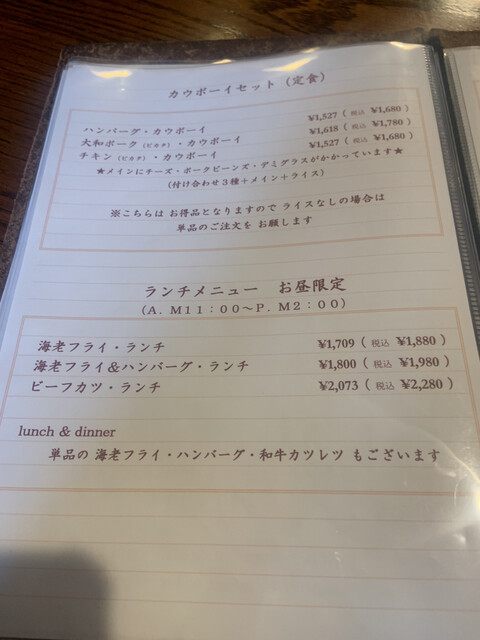 カウボーイセット (定食)
ハンバーグ・カウボーイ ¥1,527 ( 税込 ¥1,680 )
大和ポーク (ピカタ) ・カウボーイ ¥1,618 ( 税込 ¥1,780 )
チキン (ピカタ) ・カウボーイ ¥1,527 ( 税込 ¥1,680 )
★メインにチーズ・ポークビーンズ・デミグラスがかかっています★
(付け合わせ3種+メイン+ライス)
※こちらは お得品となりますので ライスなしの場合は
単品のご注文を お願します
ランチメニュー お昼限定
(A. M11:00~P. M2:00)
海老フライ・ランチ ¥1,709 ( 税込 ¥1,880 )
海老フライ&ハンバーグ・ランチ ¥1,800 ( 税込 ¥1,980 )
ビーフカツ・ランチ ¥2,073 ( 税込 ¥2,280 )
lunch & dinner
単品の 海老フライ・ハンバーグ・和牛カツレツ もございます